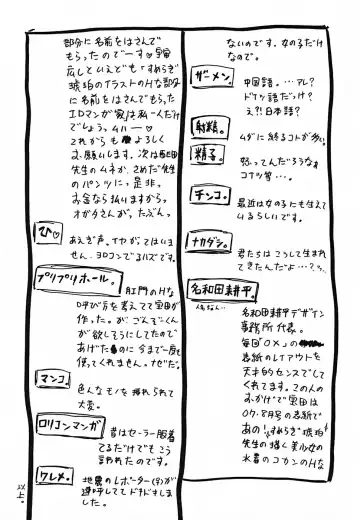 ないのです。女のみだけ
なので。
ザーメン。
中国語。…アレ?
ドイツ語だっけ?
え?!日本語?
射精。
ムダに終るコトが多い。
精子。
怒ってんだろうなぁ
コイツ等…。
チンコ。
最近は女のみにも生えて
いるらしいです。
ナカダシ。
君たちはこうして生まれ
てきたんだよ…?っ。
名和田耕平。
人名なん…
名和田耕平デザイン
事務所代表。
毎回「OX」の
表紙のレイアウトを
天才的センスでして
くれてます。この人の
おかげで室田は
07・8月号の表紙で
あの!すめらぎ琥珀
先生の描く美少女の
水着のコカンのHな
部分に名前をはさんで
もらったのでーす♡宇宙
広しといえども「すめらぎ
琥珀のイラストのHな部分
に名前をはさんでもらった
エロマンガ家は私一人だけ
でしょう。ムハー♡
これからも よろしく
お願いします。次は飯田
先生のムネか、さめだ先生
のパンツに、是非。
お金なら払いますから。
オガタさんが。たぶんっ
ひ♡
あえぎ声。イヤがってはいま
せん。ヨロコンでるハズです。
プリプリホール。
肛門のHな
呼び方を考えてて室田が
作った。が、ごんぞくん
が欲しそうにしてたので
あげたのに今まで一度も
使ってくれません。なぜだ。
マンコ。
色んなモノを挿れられて
大変。
ロリコンマンガ
昔はセーラー服着
てるだけでもこう
言われたのです。
ワレメ。
地震のレポーター(♀)が
連呼しててドキドキしま
した。
以上。